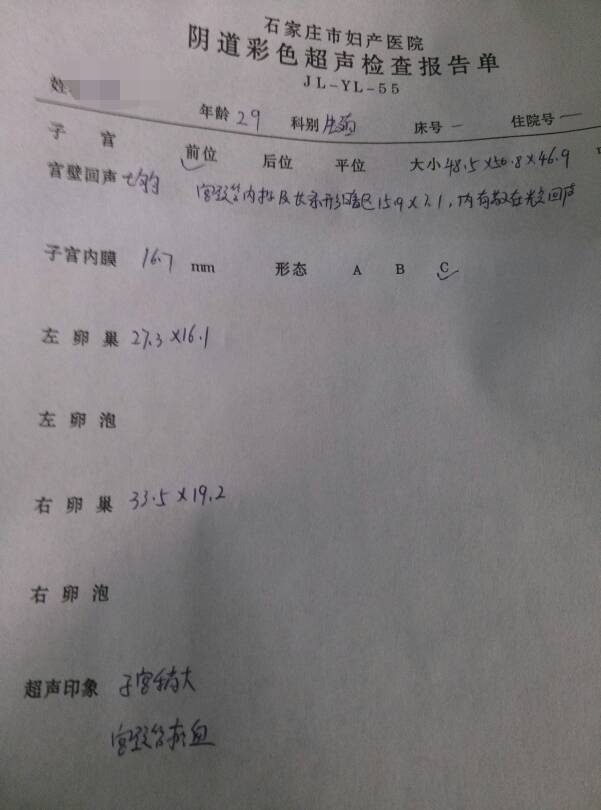 石家庄市妇产医院
阴道彩色超声检查报告单
JL-YL-55
姓
年龄 29 科别 床号 一 住院号 一
子宫 前位 后位 平位 大小 48.5×50.8×46.9
宫壁回声 均匀 宫腔管内 及长条形暗区15.9×7.1,内有散在光点回声
子宫内膜 16.7 mm 形态 A B C
左卵巢 27.3×16.1
左卵泡
右卵巢 33.5×19.2
右卵泡
超声印象 子宫稍大
宫颈管积血